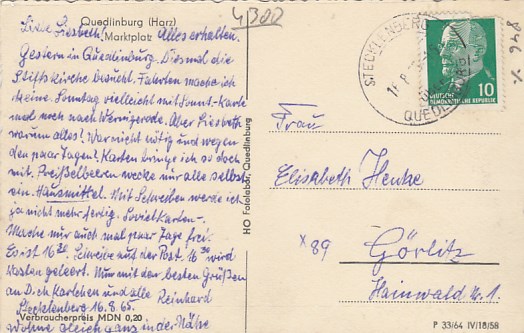 Quedlinburg (Harz)
Marktplatz
Liebe Liesbeth! Alles erhalten.
Gestern in Quedlinburg. Diesmal die
Stiftskirche besucht. Fahrten mache ich
keine. Sonntag vielleicht mit Sonnt.-Karte
mal noch nach Wernigerode. Aber Liesbeth
warum alles! War nicht nötig und wegen
den paar Tagen! Karten bringe ich so doch
mit. Preißelbeeren wecke nur alle selbst
ein. Hausmittel. Mit Schreiben werde ich
ja nicht mehr fertig. Soviel Karten.-
Mache mir auch mal paar Tage frei.
Es ist 16 20. Schreibe auf der Post. 16 30 wird
Kasten geleert. Nur mit den besten Grüßen
an Dich Karlchen und alle Reinhard
Stecklenberg 16.8.65.
Verbraucherpreis MDN 0,20
Wohne gleich ganz in der Nähe
HO Fotolabor, Quedlinburg
4300
846
STECKLENBERG
QUEDLINBURG
10
DEUTSCHE
DEMOKRATISCHE REPUBLIK
Frau
Elisabeth Henke
x 89
Görlitz
Hainwald Nr. 1
P 33/64 IV/18/58